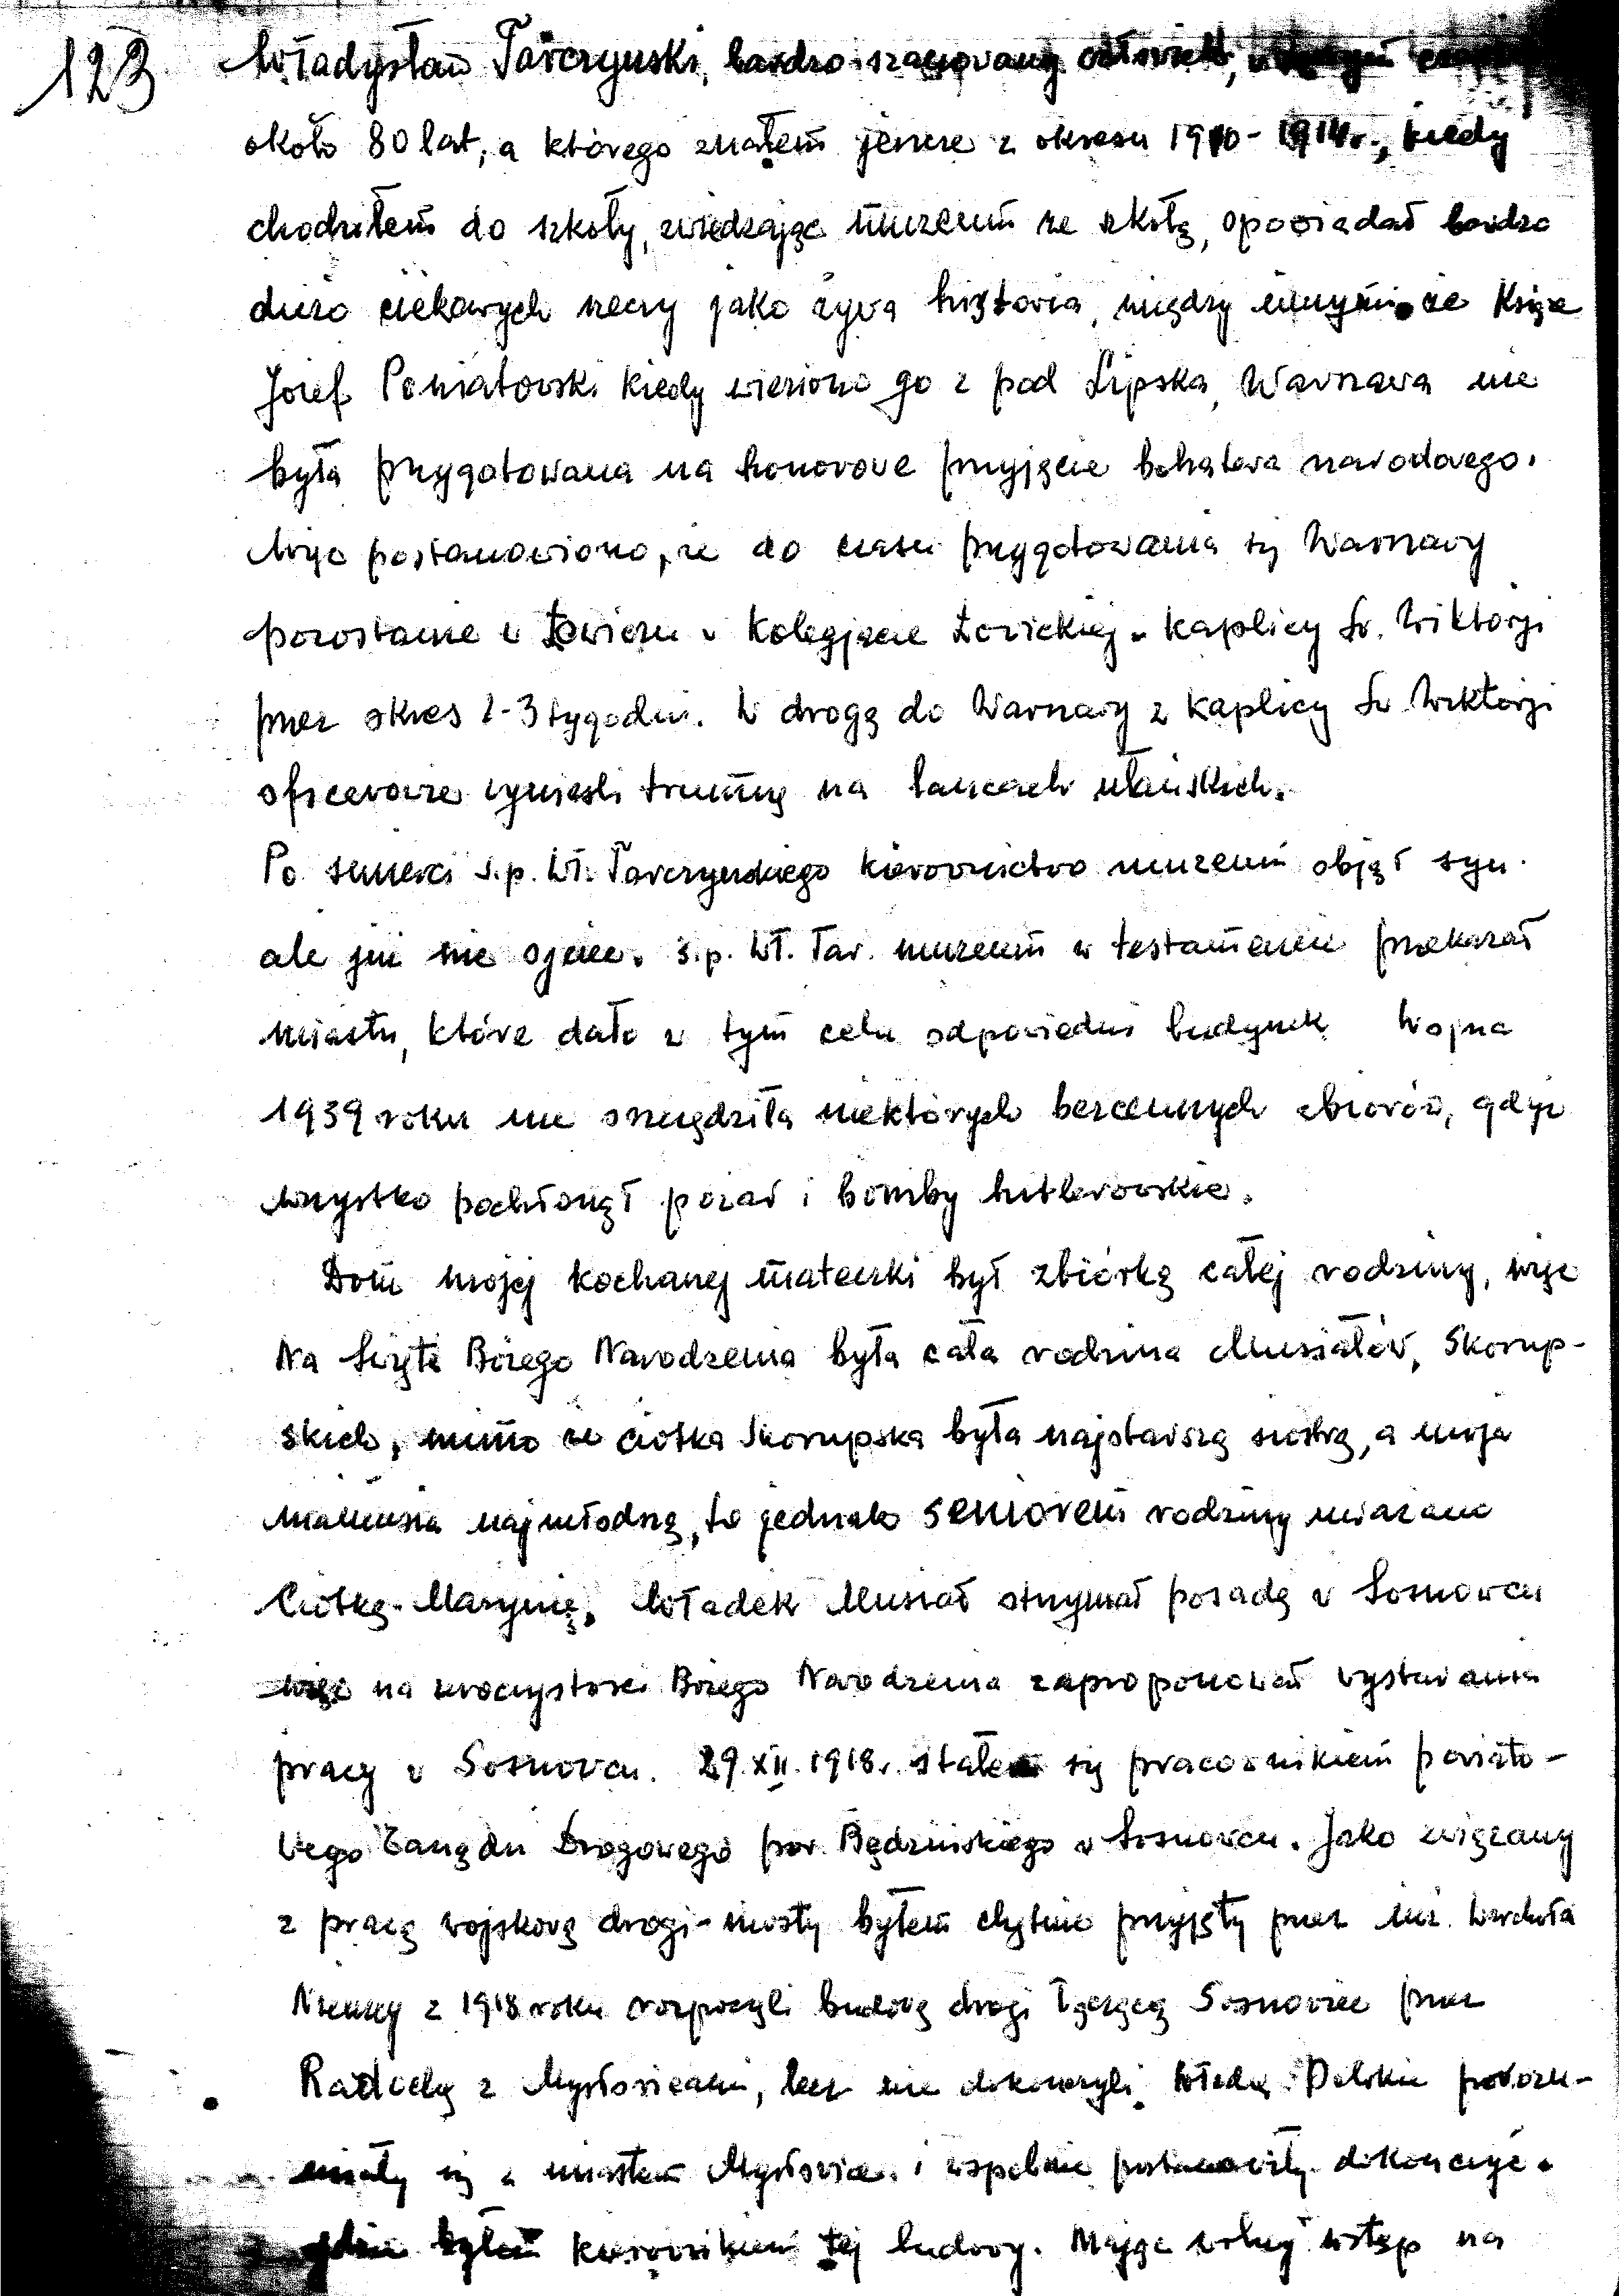 123
Władysław Tarczyński, bardzo szanowany człowiek,
około 80 lat, a którego znałem jeszcze z okresu 1910-1914r., kiedy
chodziłem do szkoły, zwiedzając muzeum ze szkołą, opowiadał bardzo
dużo ciekawych rzeczy jako żywa historia, między innymi że Książe
Józef Poniatowski kiedy wieziono go z pod Lipska, Warszawa nie
była przygotowana na honorowe przyjęcie bohatera narodowego.
Więc postanowiono, że do czasu przygotowania się Warszawy
pozostanie w Łowiczu w Kolegjacie Łowickiej w kaplicy Św. Wiktorji
przez okres 2-3 tygodni. W drogę do Warszawy z kaplicy Św. Wiktorji
oficerowie wynieśli trumnę na lancach ułańskich.
Po śmierci ś.p. Wł. Tarczyńskiego kierownictwo muzeum objął syn.
ale już nie ojciec. ś.p. Wł. Tar. muzeum w testamencie przekazał
miastu, które dało w tym celu odpowiedni budynek Wojna
1939 roku nie oszczędziła niektórych bezcennych zbiorów, gdyż
wszystko pochłonął pożar i bomby hitlerowskie.
Dom mojej kochanej mateczki był zbiórką całej rodziny, więc
Na Święta Bożego Narodzenia była cała rodzina Musiałów, Skorup-
skich, mimo że ciotka Skorupska była najstarszą siostrą, a moja
mamusia najmłodszą, to jednak seniorem rodziny uważano
Ciotkę-Marynię. Władek Musiał otrzymał posadę w Sosnowcu
więc na uroczystości Bożego Narodzenia zaproponował wystarania
pracy w Sosnowcu. 29.XII.1918r. stałem się pracownikiem powiato-
wego Zarządu Drogowego pow. Będzińskiego w Sosnowcu. Jako związany
z pracą wojskową drogi-mosty byłem chętnie przyjęty przez inż.
Niemcy z 1918 roku rozpoczęli budowę drogi łączącą Sosnowiec przez
Radochę z Mysłowicami, lecz nie dokończyli. Władze Polskie porozu-
miały się z miastem Mysłowice i wspólnie postanowiły dokończyć.
gdzie byłem kierownikiem tej budowy. Mając wolny wstęp na